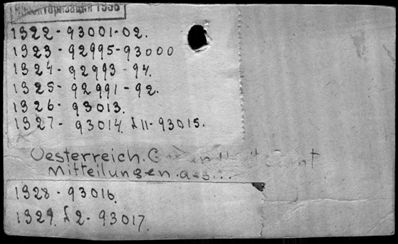 1922-93001-02.
1923-92995-93000
1924-92993-94.
1925-92991-92.
1926-93013.
1927-93014. II-93015.
Oesterreich.
Mitteilungen
1928-93016.
1929. 2-93017.